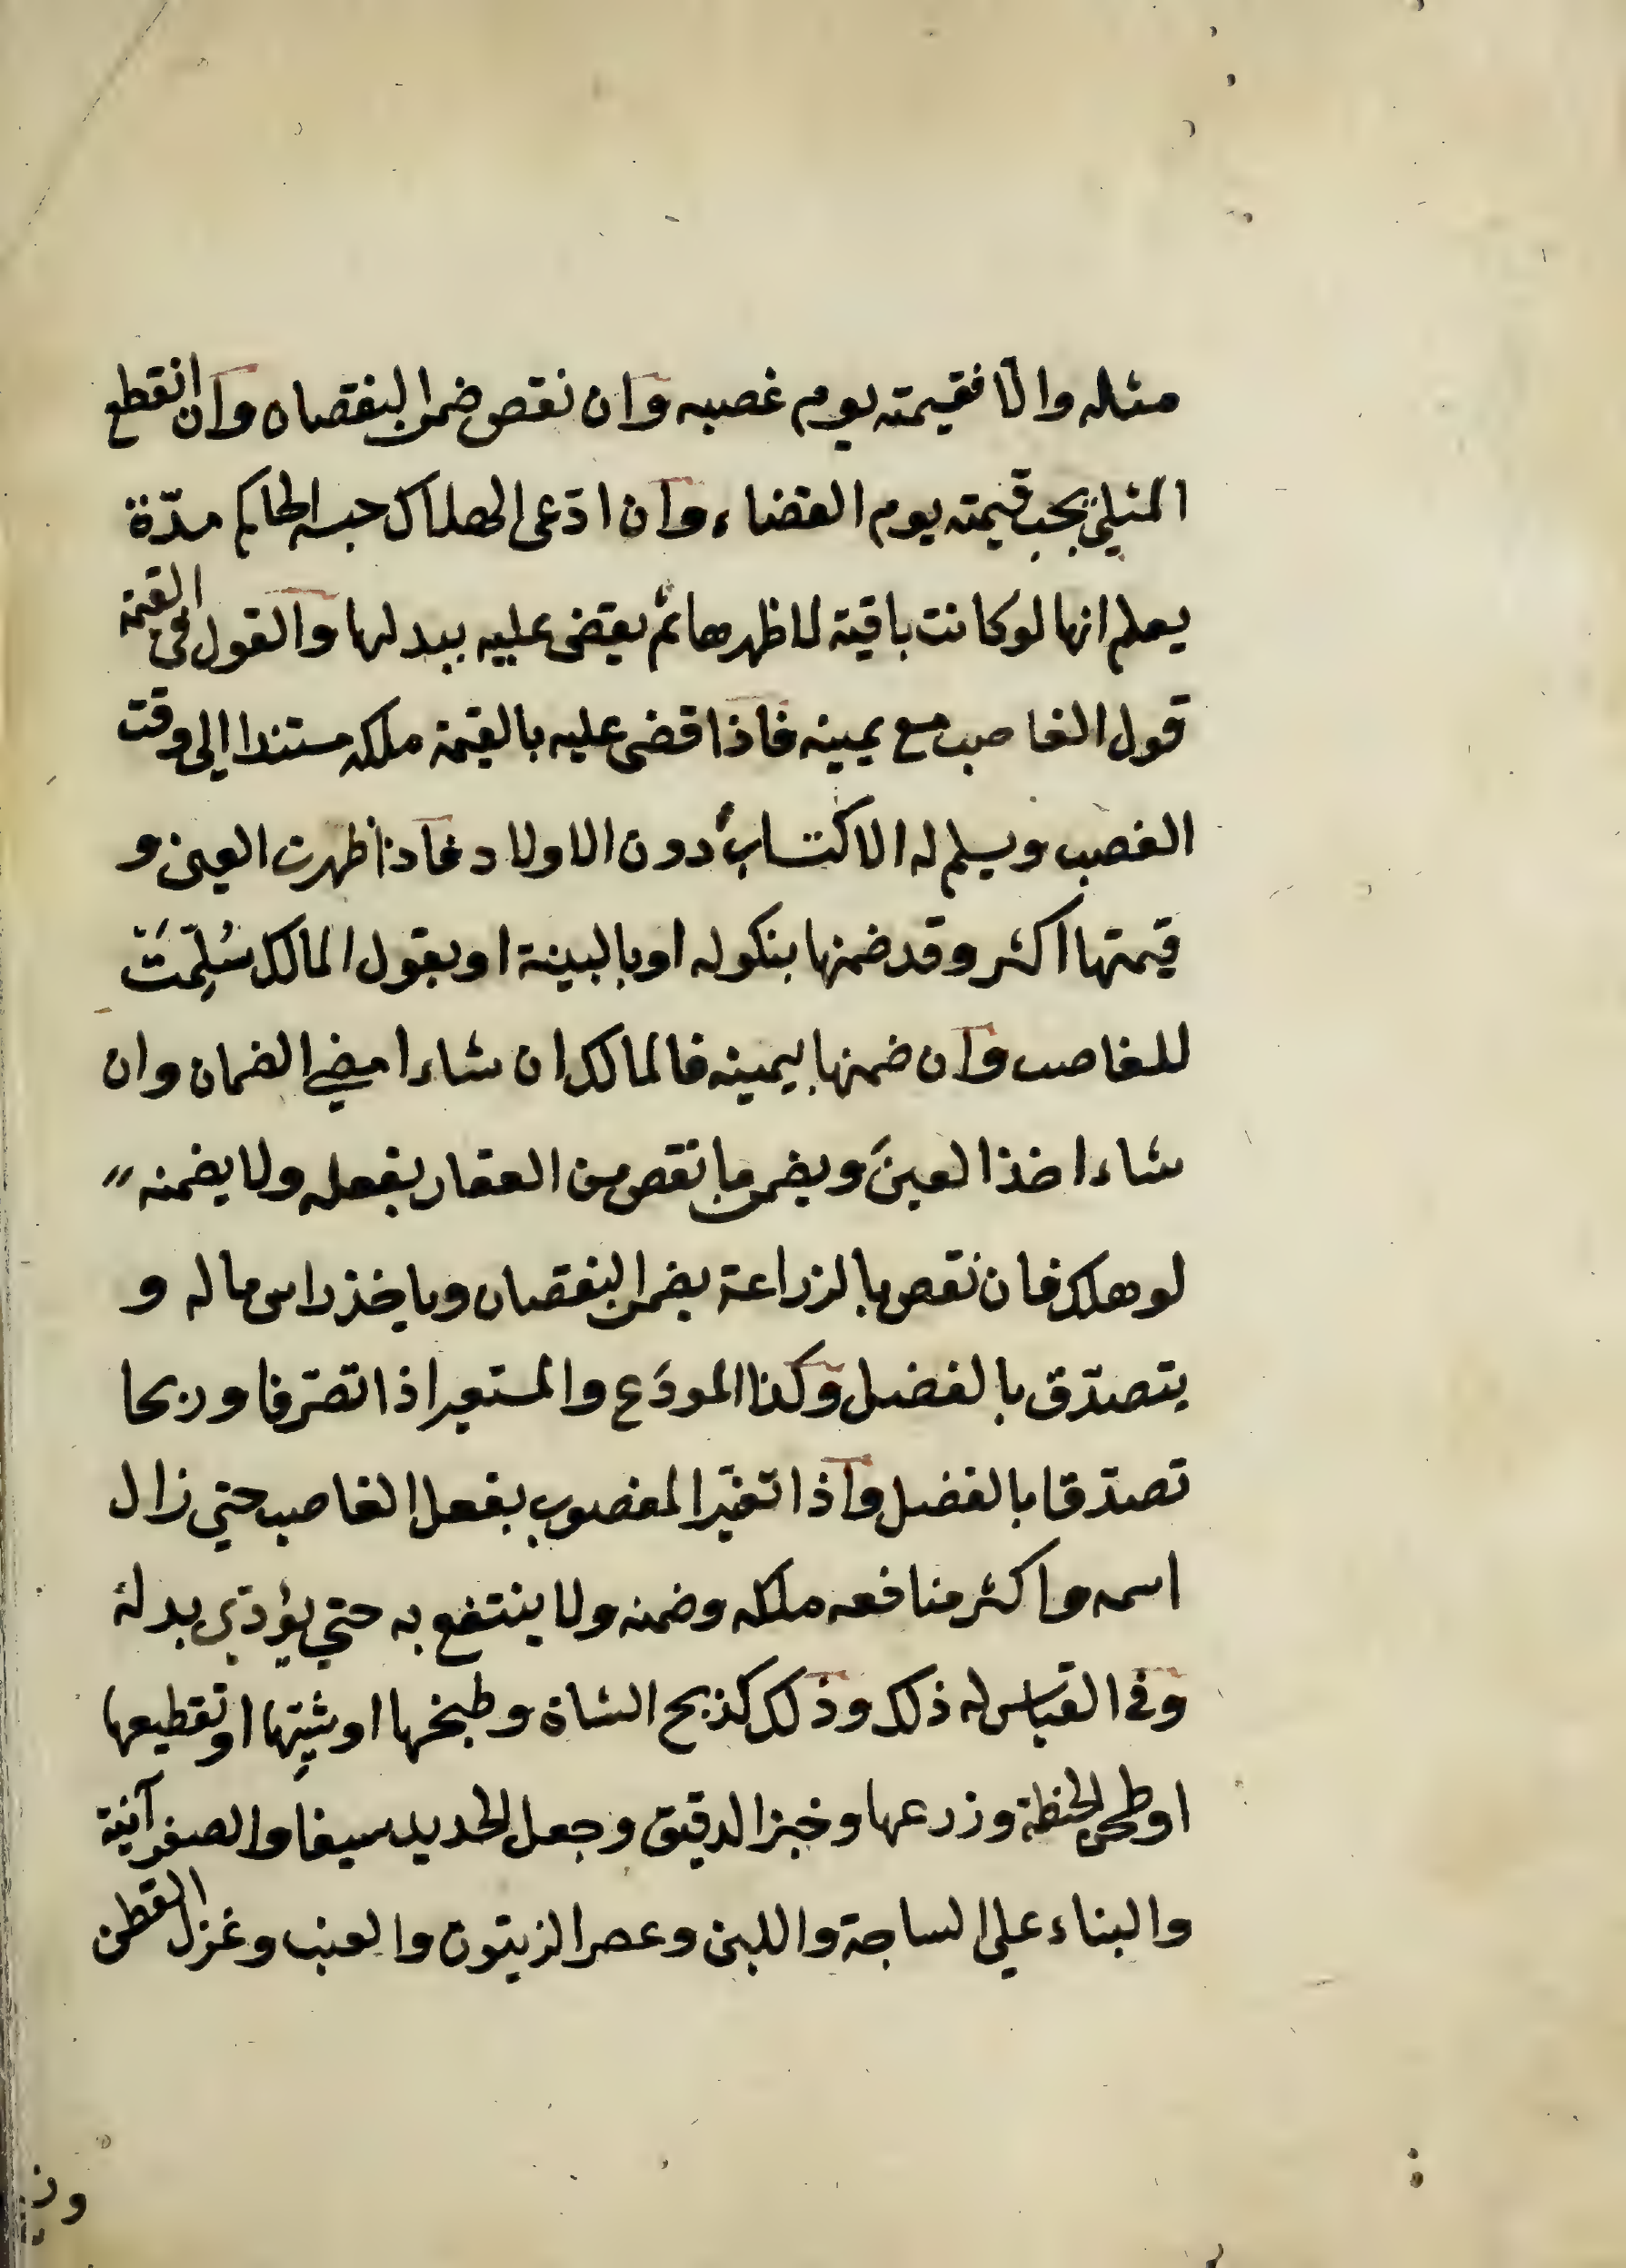 مثله والّا فقيمته يوم غصبه وان نقص ضمن النقصان وان انقطع
المثلي يجب قيمته يوم القضاء وان ادّعى الهلاك حبسه الحاكم مدّة
يعلم انها لو كانت باقية لاظهرها ثم يقضى عليه ببدلها والقول في القيمة
قول الغاصب مع يمينه فاذا قضى عليه بالقيمة ملكه مستندا الى وقت
الغصب ويسلم له الاكتساب دون الاولاد فاذا ظهرت العين و
قيمتها اكثر وقد ضمنها بنكوله او بالبينة او بقول المالك سُلِّمَتْ
للغاصب وان ضمنها بيمينه فالمالك ان شاء امضي الضمان وان
شاء اخذ العين ويضمن ما نقص من العقار بفعله ولا يضمنه
لو هلك فان نقص بالزراعة يضمن النقصان وياخذ راس ماله و
يتصدّق بالفضل وكذا المودَع والمستعير اذا تصرّفا وربحا
تصدّقا بالفضل واذا تغيّر المغصوب بفعل الغاصب حتي زال
اسمه واكثر منافعه ملكه وضمنه ولا ينتفع به حتي يؤدّي بدله
وفي القياس له ذلك وذلك كذبح الشاة وطبخها او شيّها او تقطيعها
او طحن الحنطة وزرعها وخبز الدقيق وجعل الحديد سيفا والصفر آنية
والبناء علي الساجة واللبن وعصر الزيتون والعنب وغزل القطن